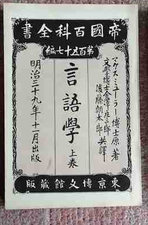 帝國百科全書
第百五十七編
マクスミューラー博士原著
文學博士金澤庄三郎
後藤朝太郎 共譯
言語學 上卷
明治三十九年十一月出版
東京博文館蔵版